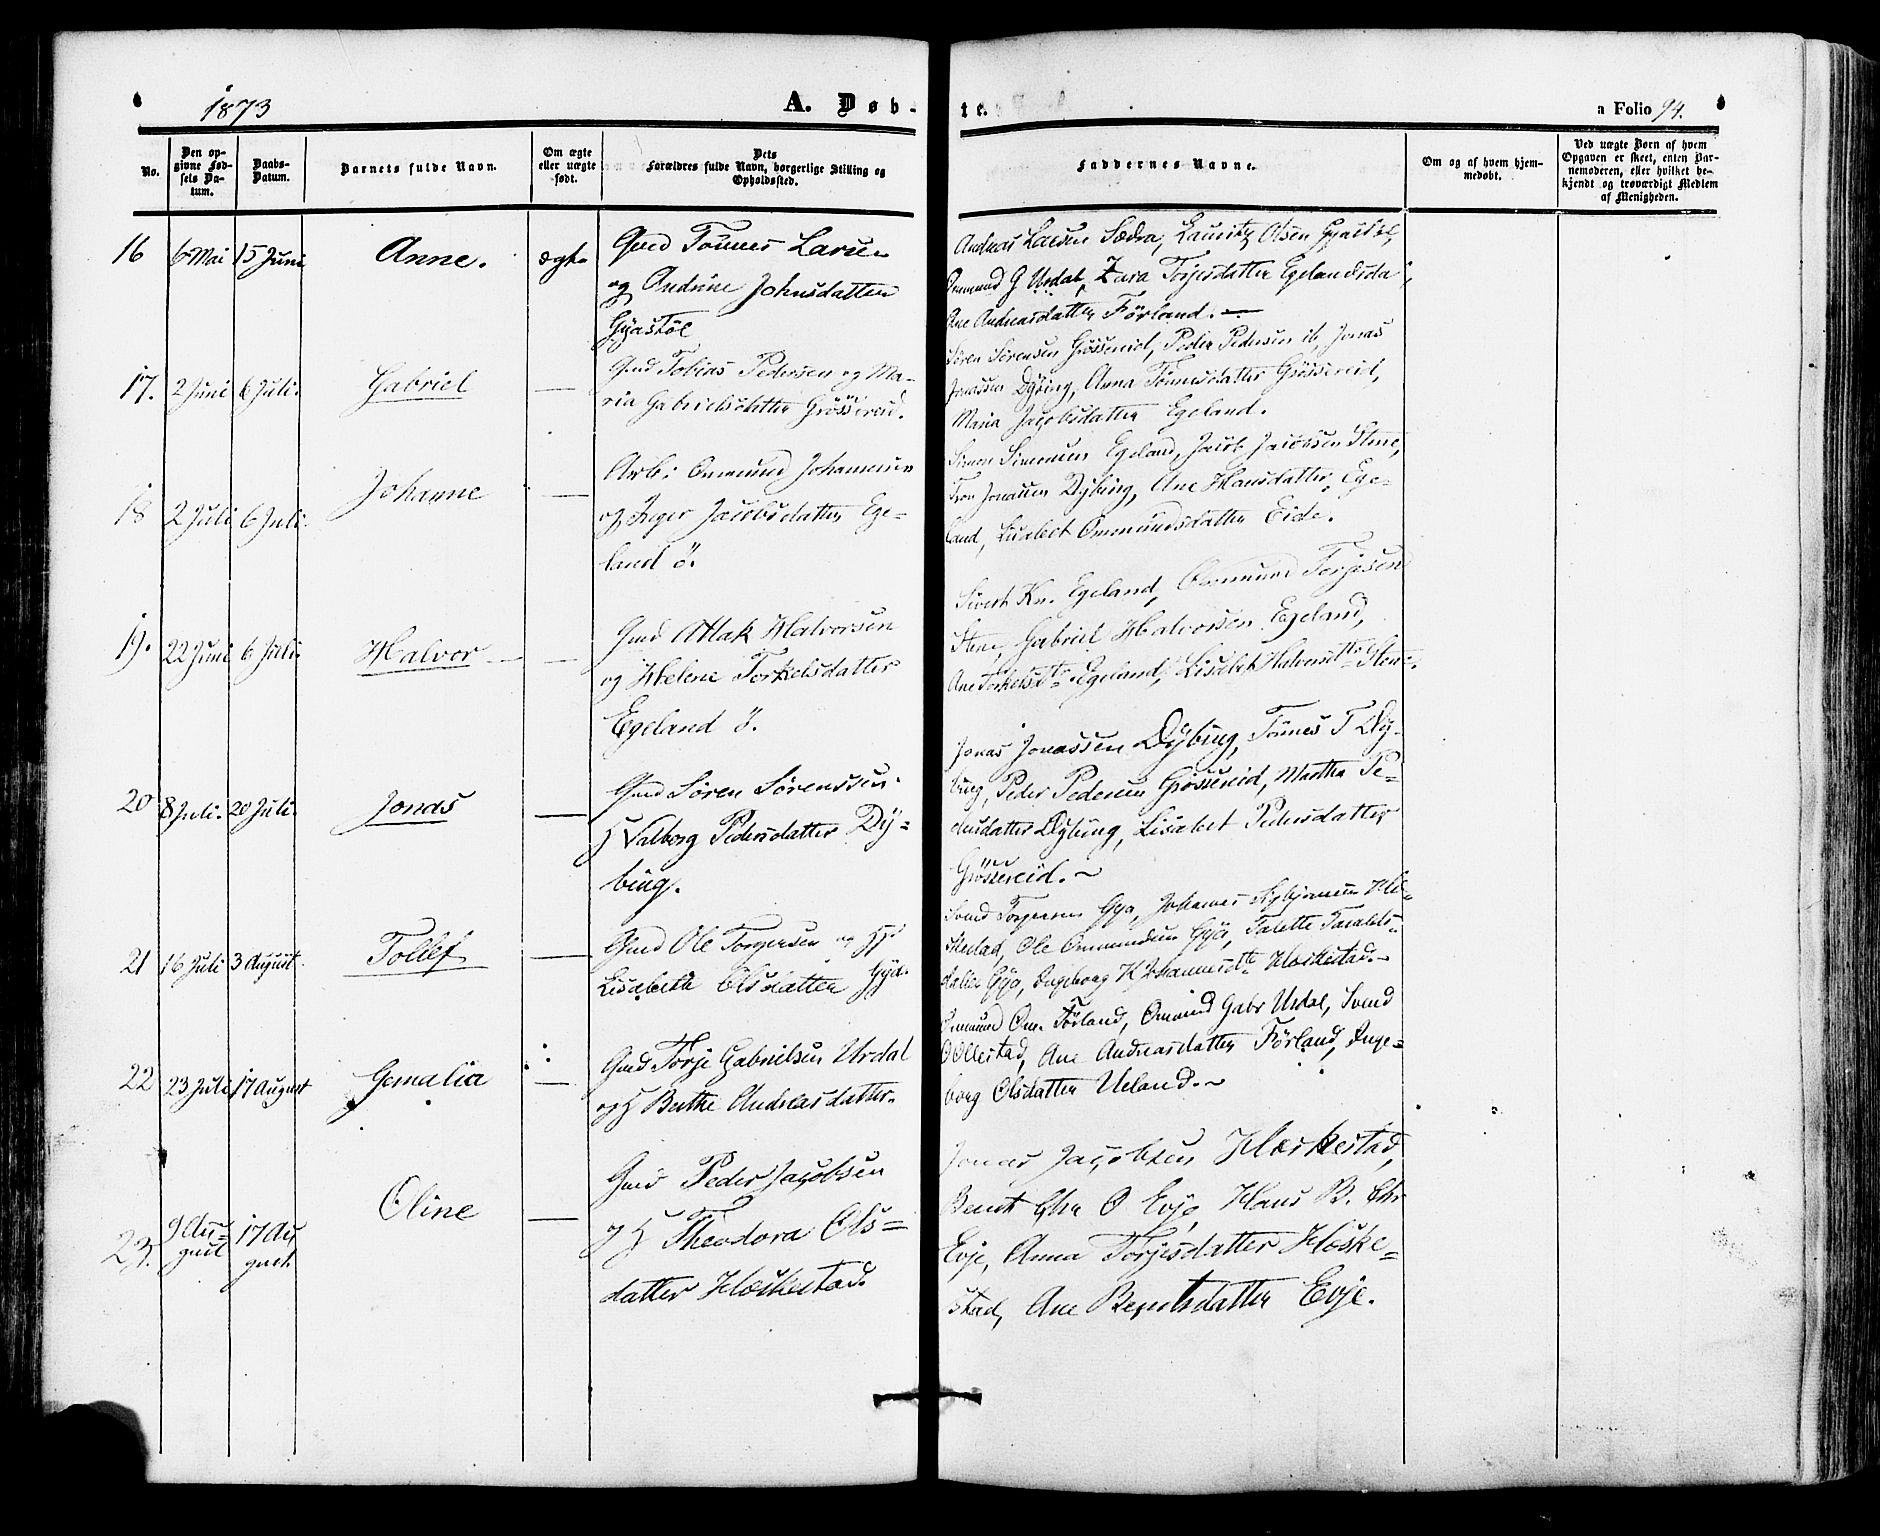 1873
A. Døb-
te.
a Folio 94.
No.
Den op-
givne Fød-
sels Da-
tum.
Daabs-
Datum.
Barnets fulde Navn.
Om ægte
eller uægte
født.
Dets
Forældres fulde Navn, borgerlige Stilling og
Opholdssted.
Faddernes Navne.
Om og af hvem hjem-
medøbt.
Ved uægte Børn af hvem
Opgaven er skeet, enten Bar-
nemoderen, eller hvilket be-
kjendt og troværdigt Medlem
af Menigheden.
16 6 Mai 15 Juni Anne. ægte
Gmd Tønnes Larsen
og Andrine Johnsdatter
Gyastøl
Andreas Larsen Sædra, Lauritz Olsen Gyastøl,
Ommund G Urdal, Zara Torjesdatter Egelandsda
Ane Andreasdatter Förland.
17. 2 Juni 6 Juli. Gabriel —
Gmd Tobias Pedersen og Ma-
ria Gabrielsdatter Grössereid.
Sören Sörensen Grössereid, Peder Pedersen ib, Jonas
Jonassen Dybing, Anna Tönnesdatter Grössereid,
Maria Jacobsdatter Egeland.
18 2 Juli 6 Juli. Johanne —
Arb: Ommund Johannesen
og Inger Jacobsdatter Ege-
land ö.
Simon Simonsen Egeland, Jacob Jacobsen Stene,
Tron Jonassen Dybing, Ane Hansdatter Ege-
land, Lisabet Ommundsdatter Eide.
19. 22 Juni 6 Juli. Halvor —
Gmd Atlak Halvorsen
og Helene Torkelsdatter
Egeland ö.
Sivert Kn. Egeland, Ommund Torjesen
Stene, Gabriel Halvorsen Egeland,
Ane Torkelsdtr Egeland, Lisabet Halvorsdtr Stene.
20 8 Juli. 20 Juli. Jonas —
Gmd Sören Sörenssen
H Valborg Pedersdatter Dy=
bing.
Jonas Jonassen Dybing, Tönnes T Dy-
bing, Peder Pedersen Grössereid, Martha Pe-
dersdatter Dybing, Lisabet Pedersdatter
Grössereid.
21 16 Juli 3 August. Tollef —
Gmd Ole Torgersen og H
Lisabeth Olsdatter Gya.
Svend Torgersen Gya, Johannes Hø-
skestad, Ole Ommundsen Gya, Talette Taralds-
datter Gya, Ingeborg K Johannesdtr Høskestad.
22 23 Juli 17 August Gemalia —
Gmd Torje Gabrielsen Urdal
og H Berthe Andreasdatter.
Ommund Om. Förland, Omund Gabr Urdal, Svend
O Ollestad, Ane Andreasdatter Förland, Inge-
borg Olsdatter Ueland.
23. 9 Au-
gust 17 Au
gust. Oline —
Gmd Peder Jacobsen
og H Theodora Ols=
datter Høskestad.
Jonas Jacobsen Høskestad,
Bernt Chr O Evje, Hans B. Chr
Evje, Anna Torjesdatter Høske-
stad, Ane Berntsdatter Evje.